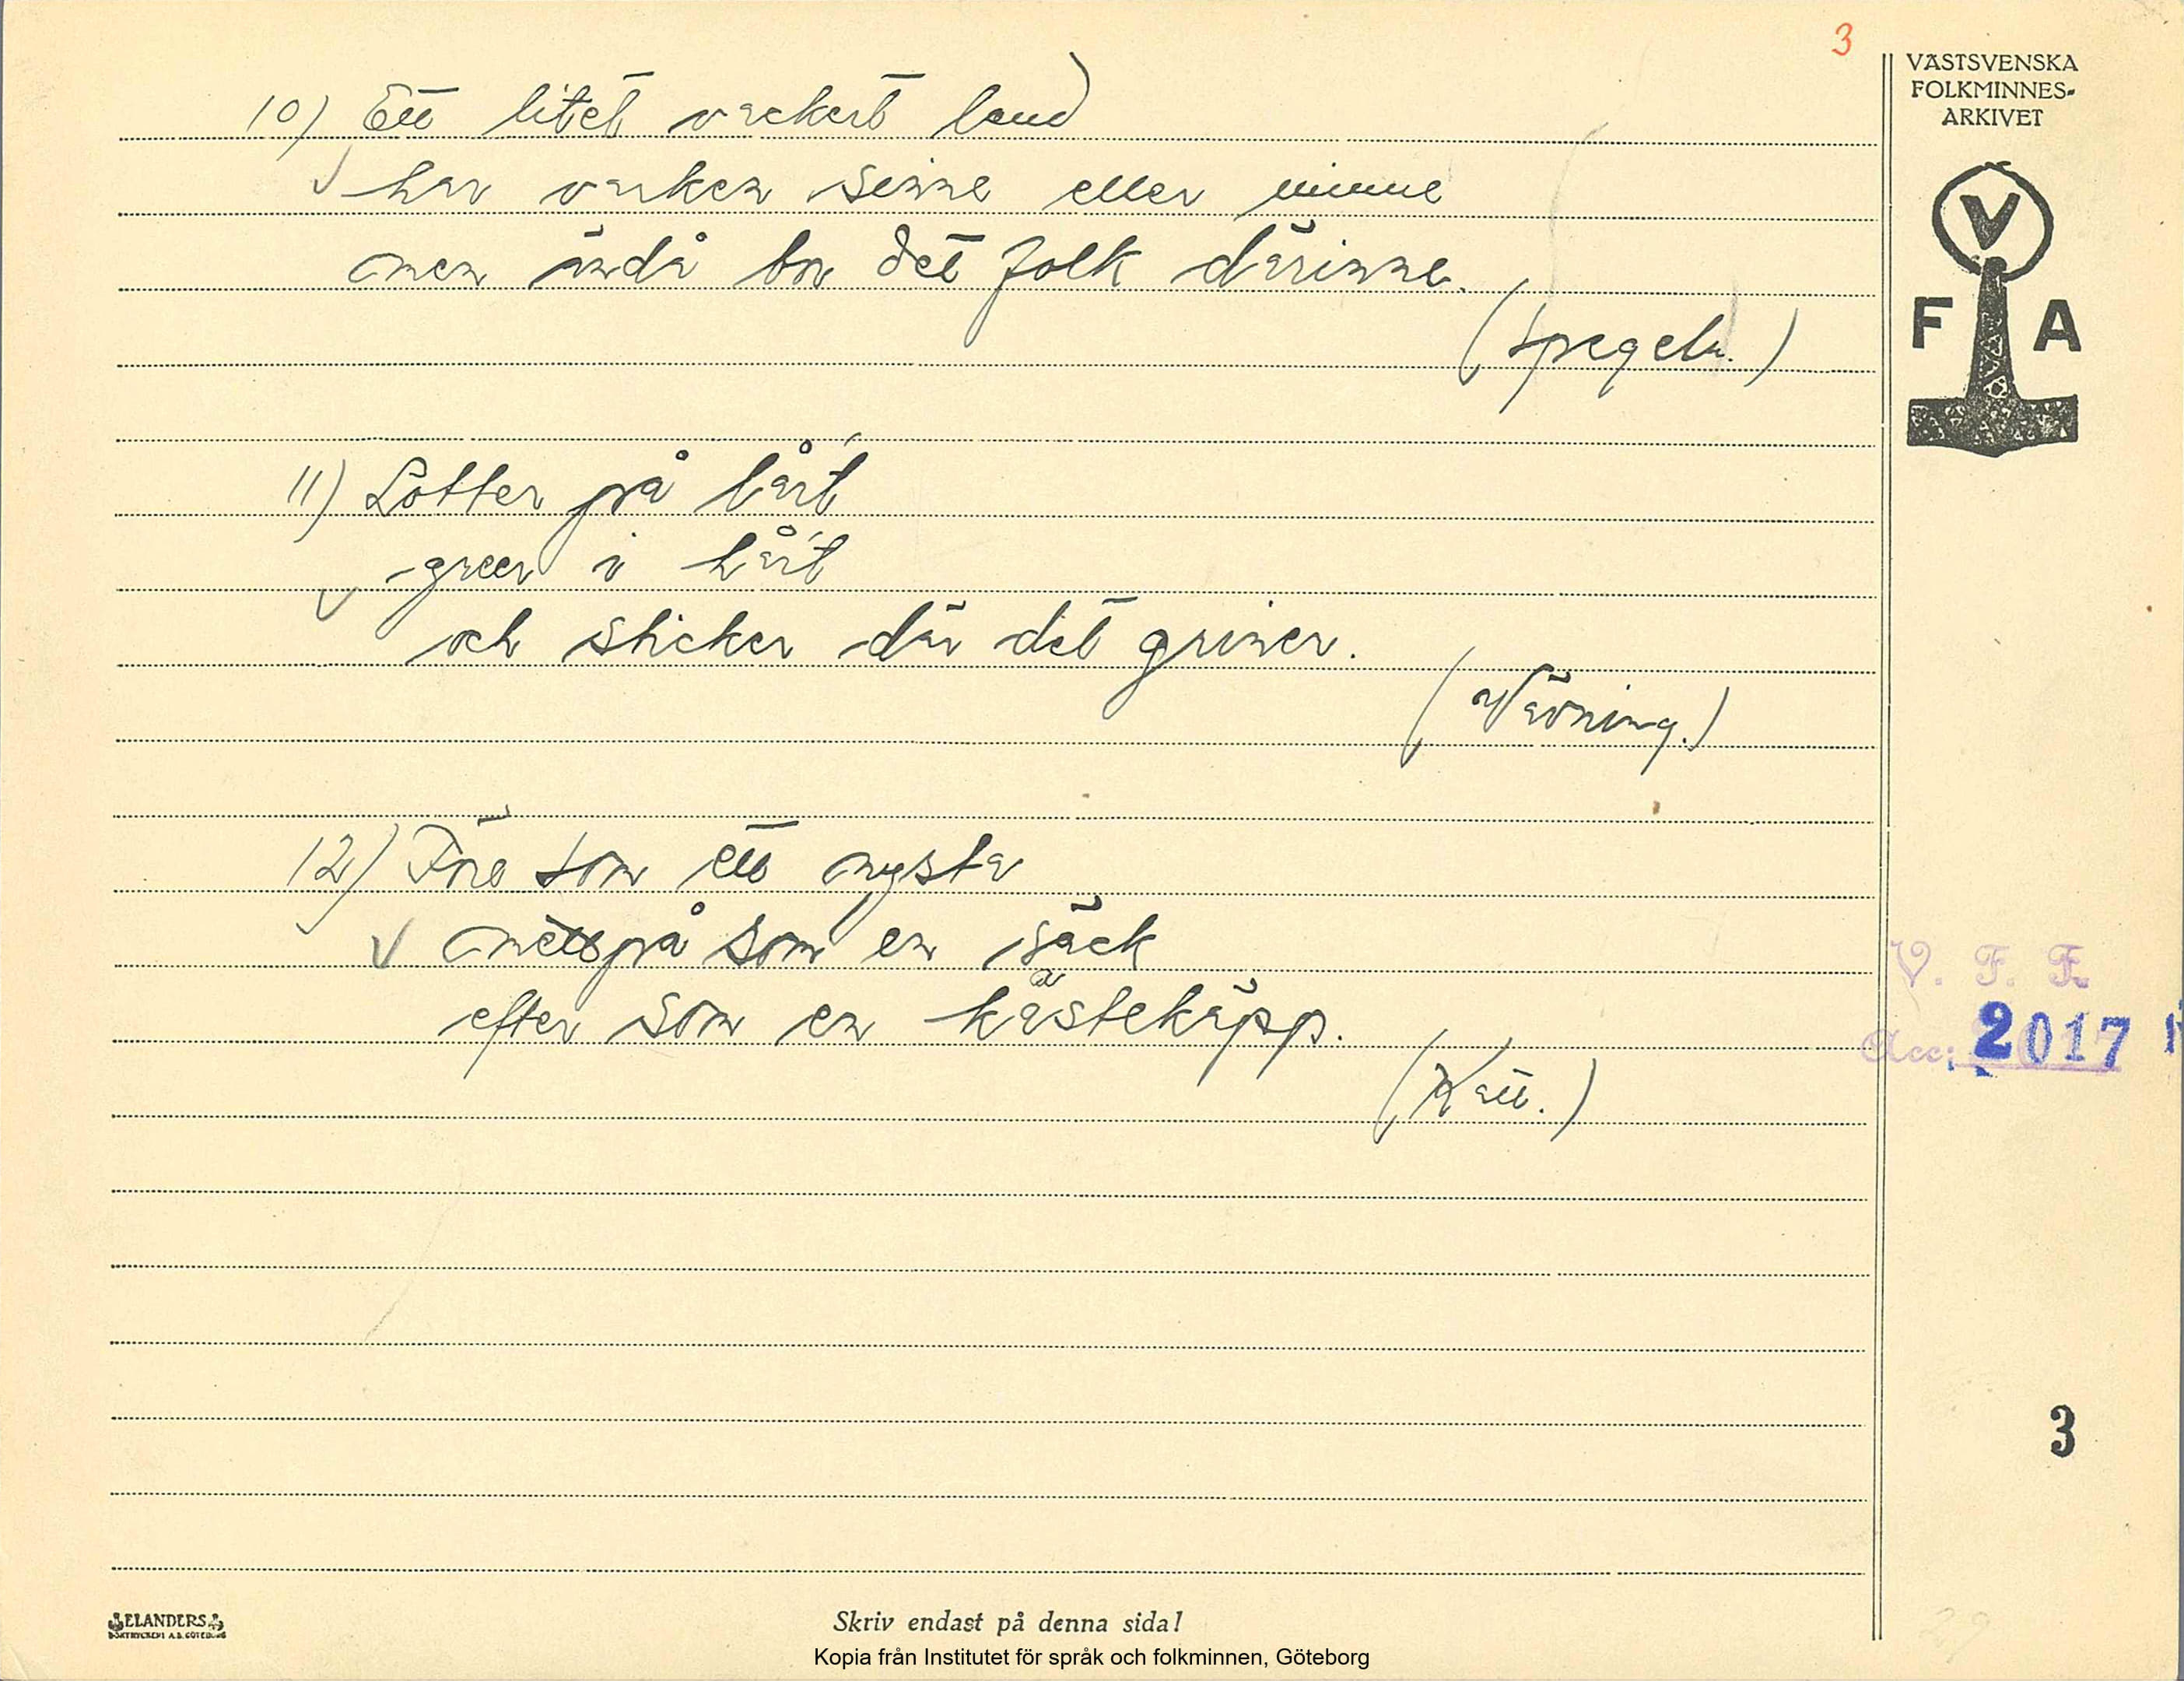 3
VÄSTSVENSKA
FOLKMINNES-
ARKIVET
V
F A
10) Ett litet vackert land
har varken sinne eller minne
men ändå bor det folk därinne.
(Spegeln.)
11) Lotter på lårt
i hårt
och sticker där det griner.
(Vävning.)
12) Före som ett nysta
mettspå som en säck
efter som en kästekäpp.
(Katt.)
V. F. F.
Acc: 2017
3
29
ELANDERS
BOKTRYCKERI A.B. GÖTEBORG
Skriv endast på denna sida!
Kopia från Institutet för språk och folkminnen, Göteborg